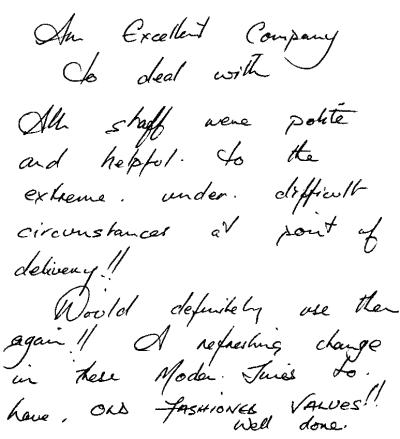 An Excellent Company
to deal with
All staff were polite
and helpful. to the
extreme. under. difficult
circumstances at point of
delivery!!
Would definitely use them
again!! A refreshing change
in these Modern Times to.
have, OLD FASHIONED VALUES!!
Well done.